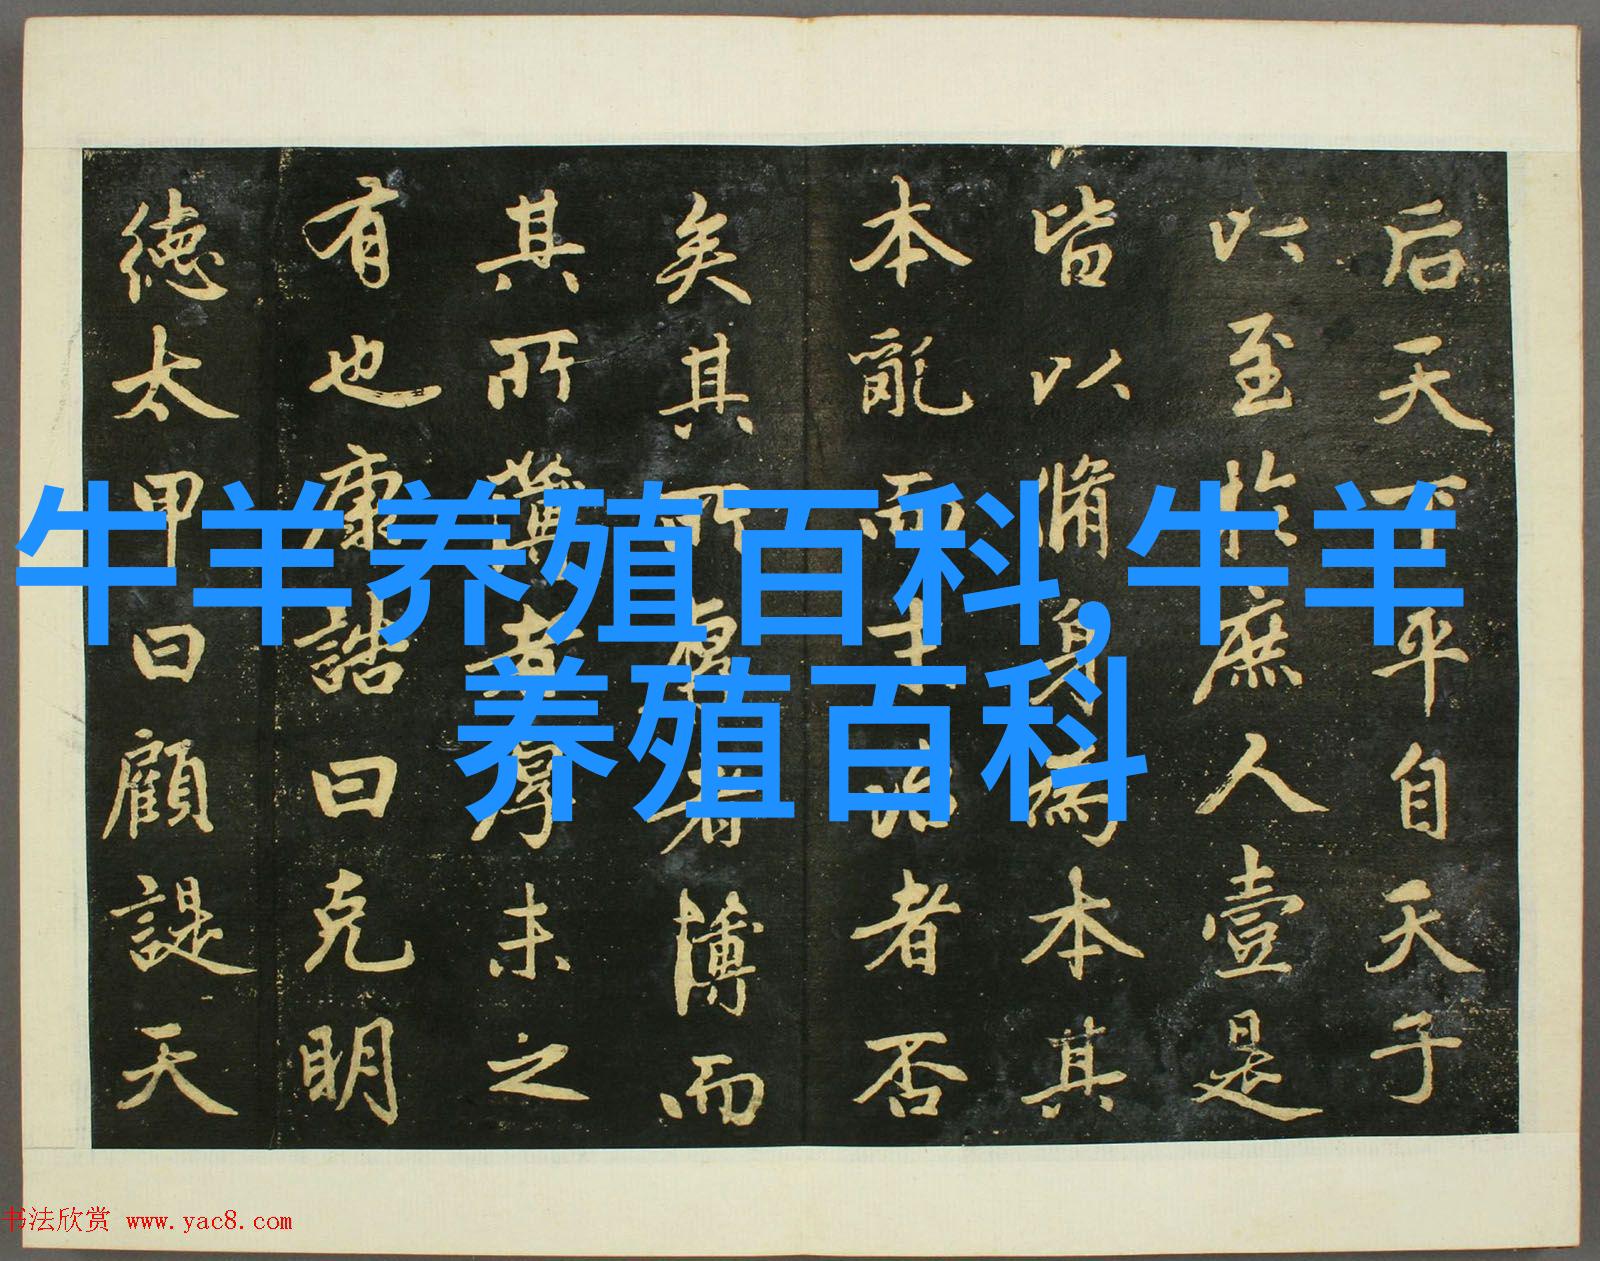 后天下平自天子
以至於庶人壹是
皆以脩身為本其
本亂而末治者否
矣其所厚者薄而
其所薄者厚未之
有也康誥曰克明
徳太甲曰顧諟天
牛羊养殖百科,牛羊
养殖百科
书法欣赏 www.yac8.com